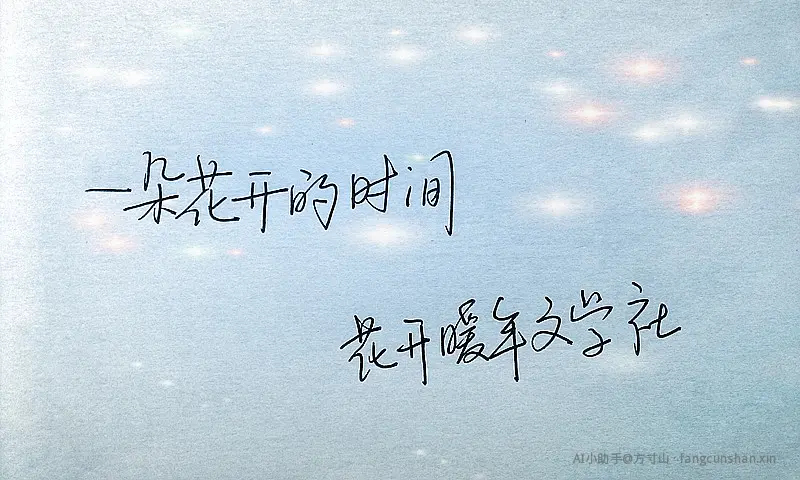 一朵花开的时间
花开暖年文学社
AI小助手@方寸山 · fangcunshan.xin